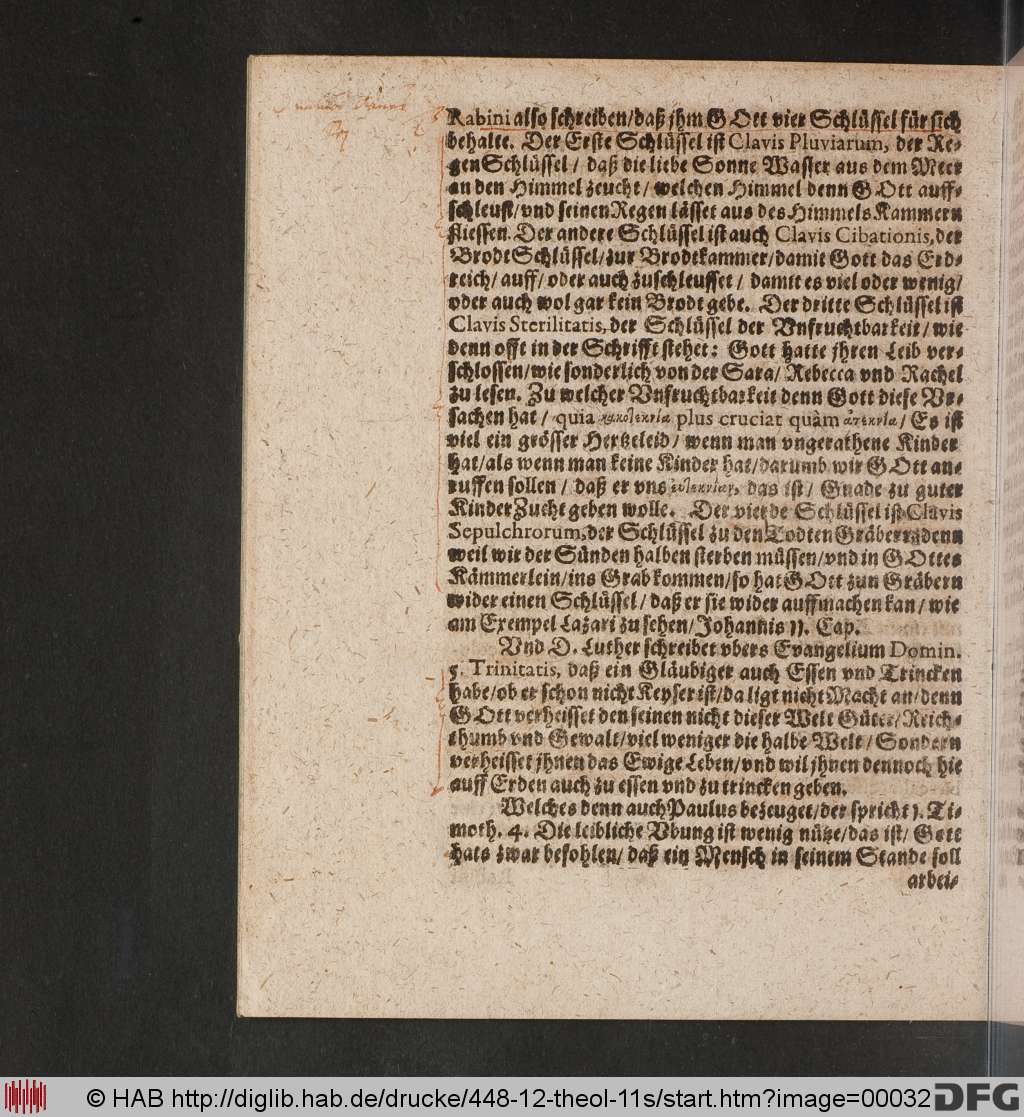 Rabini also schreiben/daß jhm GOtt vier Schlüssel für sich
behalte. Der Erste Schlüssel ist Clavis Pluviarum, der Re-
gen Schlüssel / daß die liebe Sonne Wasser aus dem Meer
an den Himmel zeucht / welchen Himmel denn GOtt auff-
schleust/vnd seinen Regen lässet aus des Himmels Kammern
fliessen. Der andere Schlüssel ist auch Clavis Cibationis, der
Brodt Schlüssel/zur Brodtkammer/damit Gott das Erd-
reich/auff/oder auch zuschleusset / damit es viel oder wenig/
oder auch wol gar kein Brodt gebe. Der dritte Schlüssel ist
Clavis Sterilitatis, der Schlüssel der Vnfruchtbarkeit/wie
denn offt in der Schrifft stehet: Gott hatte jhren Leib ver-
schlossen/wie sonderlich von der Sara/ Rebecca vnd Rachel
zu lesen. Zu welcher Vnfruchtbarkeit denn Gott diese Vr-
sachen hat / quia κακοτεκνία plus cruciat quàm ἀτεκνία / Es ist
viel ein grösser Hertzeleid / wenn man vngerathene Kinder
hat/als wenn man keine Kinder hat/darumb wir GOtt an-
ruffen sollen / daß er vns das ist/ Gnade zu guter
Kinder Zucht geben wolle. Der vierde Schlüssel ist Clavis
Sepulchrorum, der Schlüssel zu den Todten Gräbern/denn
weil wir der Sünden halben sterben müssen/vnd in GOttes
Kämmerlein/ins Grab kommen/so hat GOtt zun Gräbern
wider einen Schlüssel / daß er sie wider auffmachen kan / wie
am Exempel Lazari zu sehen/Johannis 11. Cap.
Vnd D. Luther schreibet vbers Evangelium Domin.
5. Trinitatis, daß ein Gläubiger auch Essen vnd Trincken
habe/ob er schon nicht Keyser ist/da ligt nicht Macht an/denn
GOtt verheisset den seinen nicht dieser Welt Güter/Reich-
thumb vnd Gewalt/viel weniger die halbe Welt / Sondern
verheisset jhnen das Ewige Leben/vnd wil jhnen dennoch hie
auff Erden auch zu essen vnd zu trincken geben.
Welches denn auch Paulus bezeuget/der spricht 1. Ti-
moth. 4. Die leibliche Vbung ist wenig nütze/das ist/ Gott
hats zwar befohlen/ daß ein Mensch in seinem Stande soll
arbei-
© HAB http://diglib.hab.de/drucke/448-12-theol-11s/start.htm?image=00032
DFG